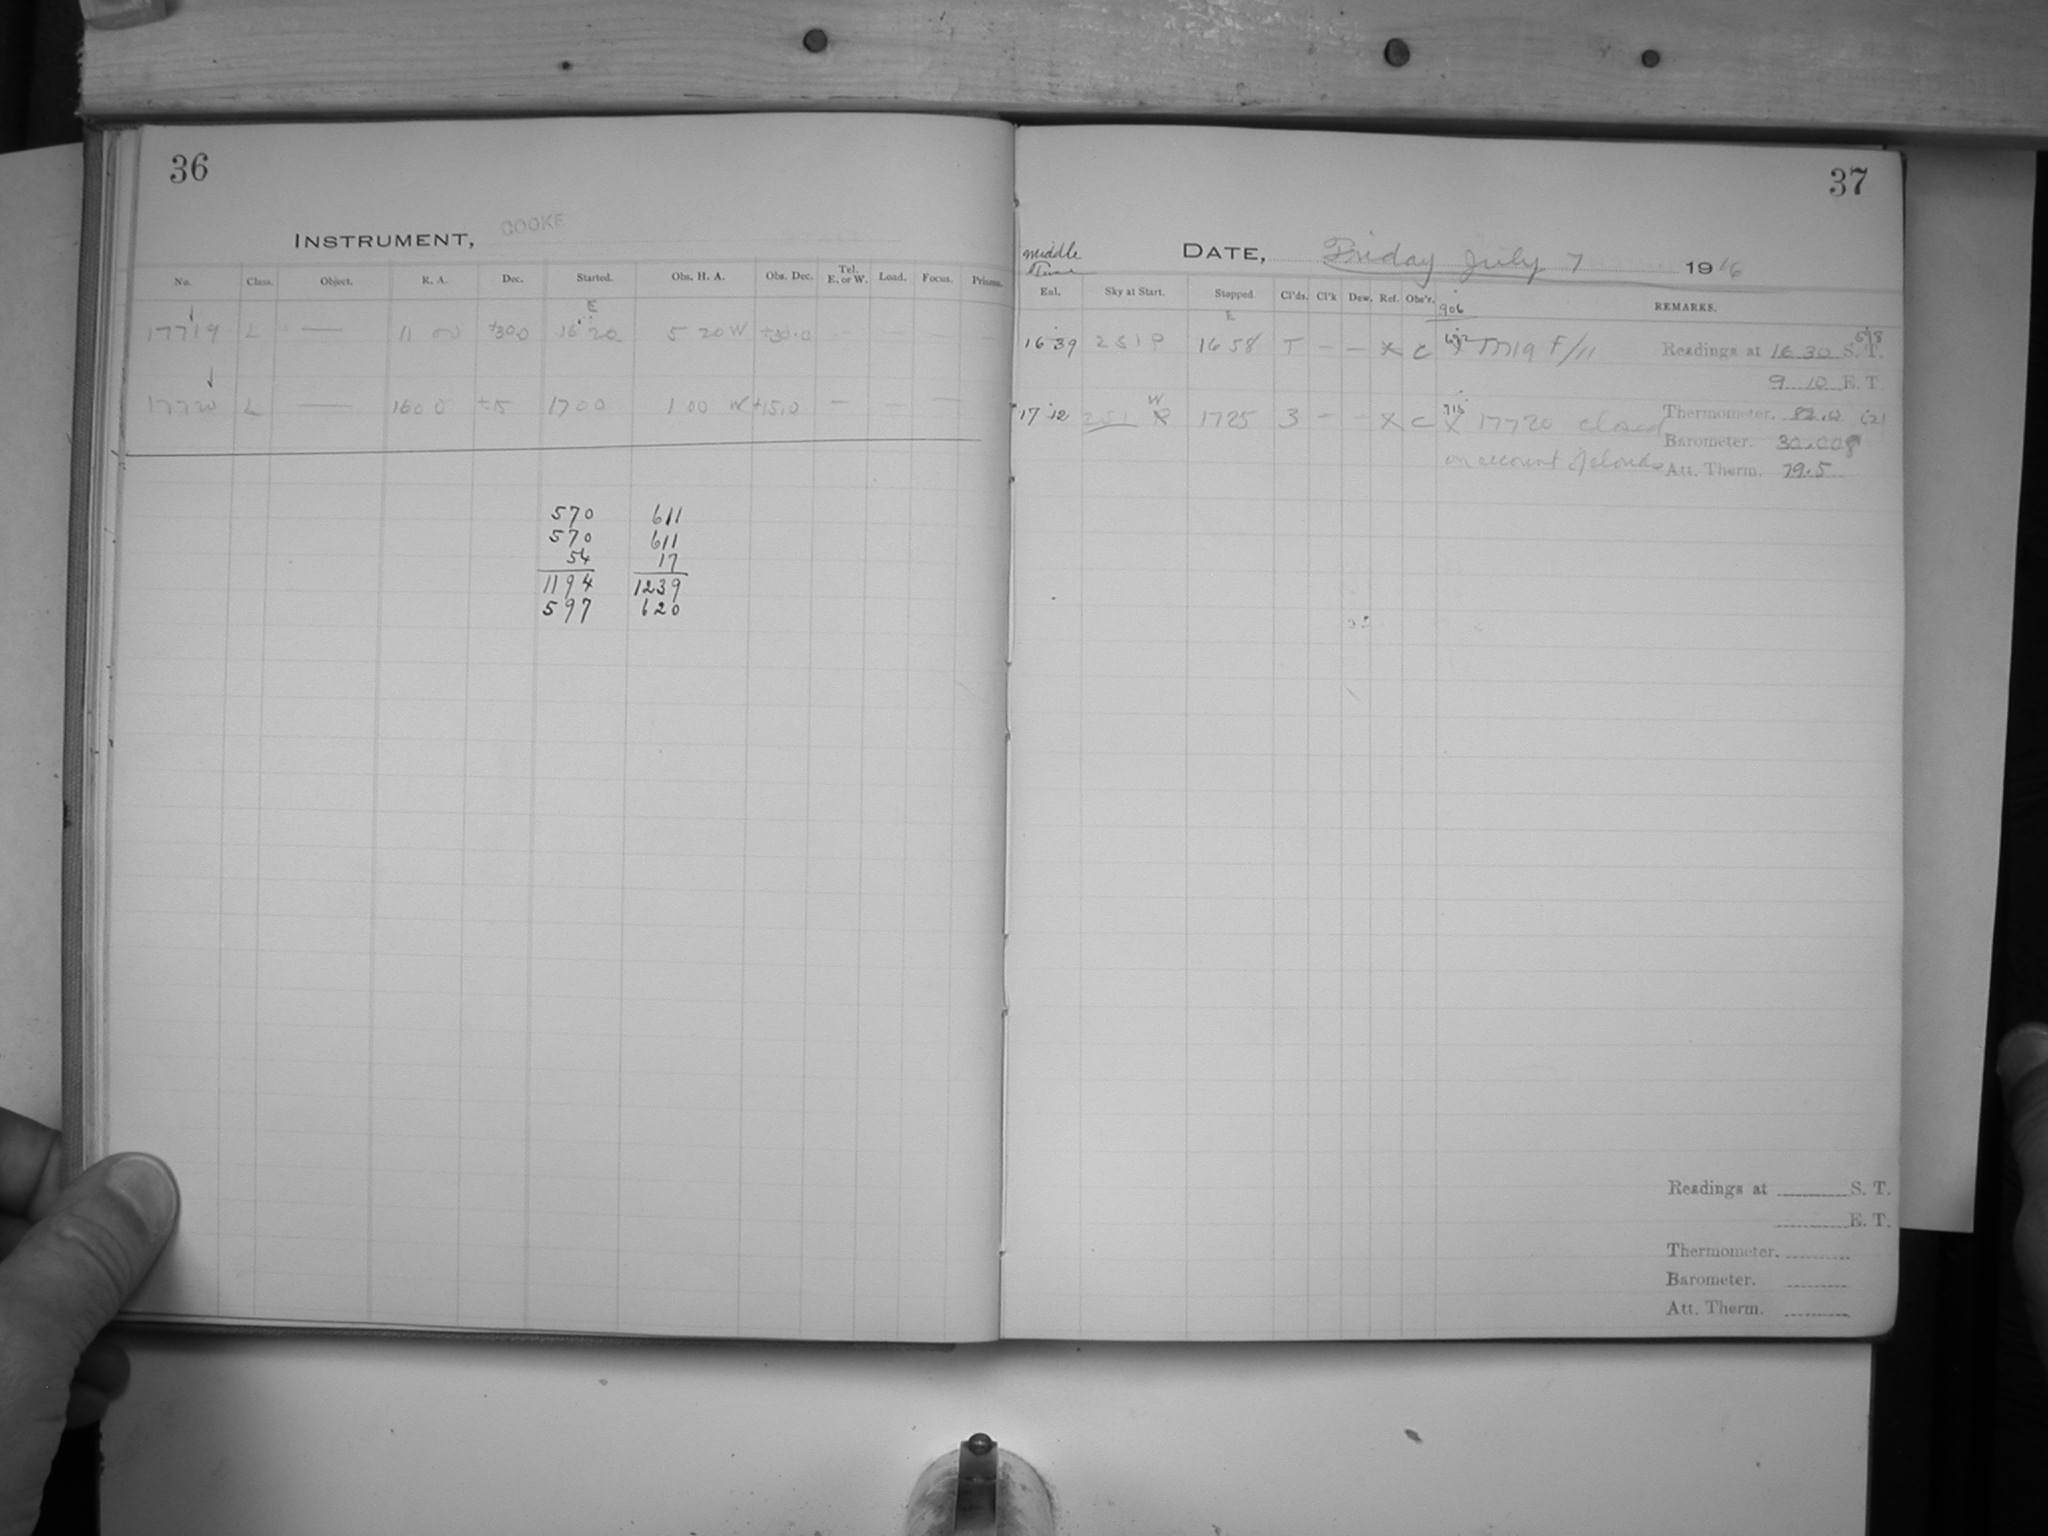 36
INSTRUMENT, COOKE
No. Class. Object. R. A. Dec. Started. Obs. H. A. Obs. Dec. Tel. E. or W. Load. Focus. Prisms.
E
17719 L — 11 00 +30.0 16 20 5 20 W +30.0 — — — —
17720 L — 16 00 +15 17 00 1 00 W +15.0 — — —
570 611
570 611
54 17
1194 1239
597 620
37
Middle Time
DATE, Friday July 7 1916
Eal. Sky at Start. Stopped Cl'ds. Cl'k Dew. Ref. Obs'r. REMARKS.
906
E
16 39 2 S 1 P 16 58 T — — X C X 17719 F/11
Readings at 16 30 S. T.
598
9 10 E. T.
W
17 12 2 S 1 P 17 25 3 — — X C X 17720 closed
915
on account of clouds
Thermometer. 82.0 621
Barometer. 30.008
Att. Therm. 79.5
Readings at S. T.
E. T.
Thermometer.
Barometer.
Att. Therm.